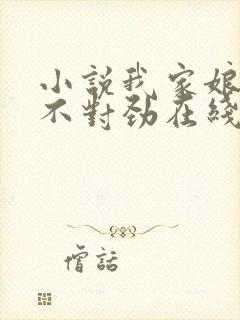 小說我家娘
不對勁在綫
僧話